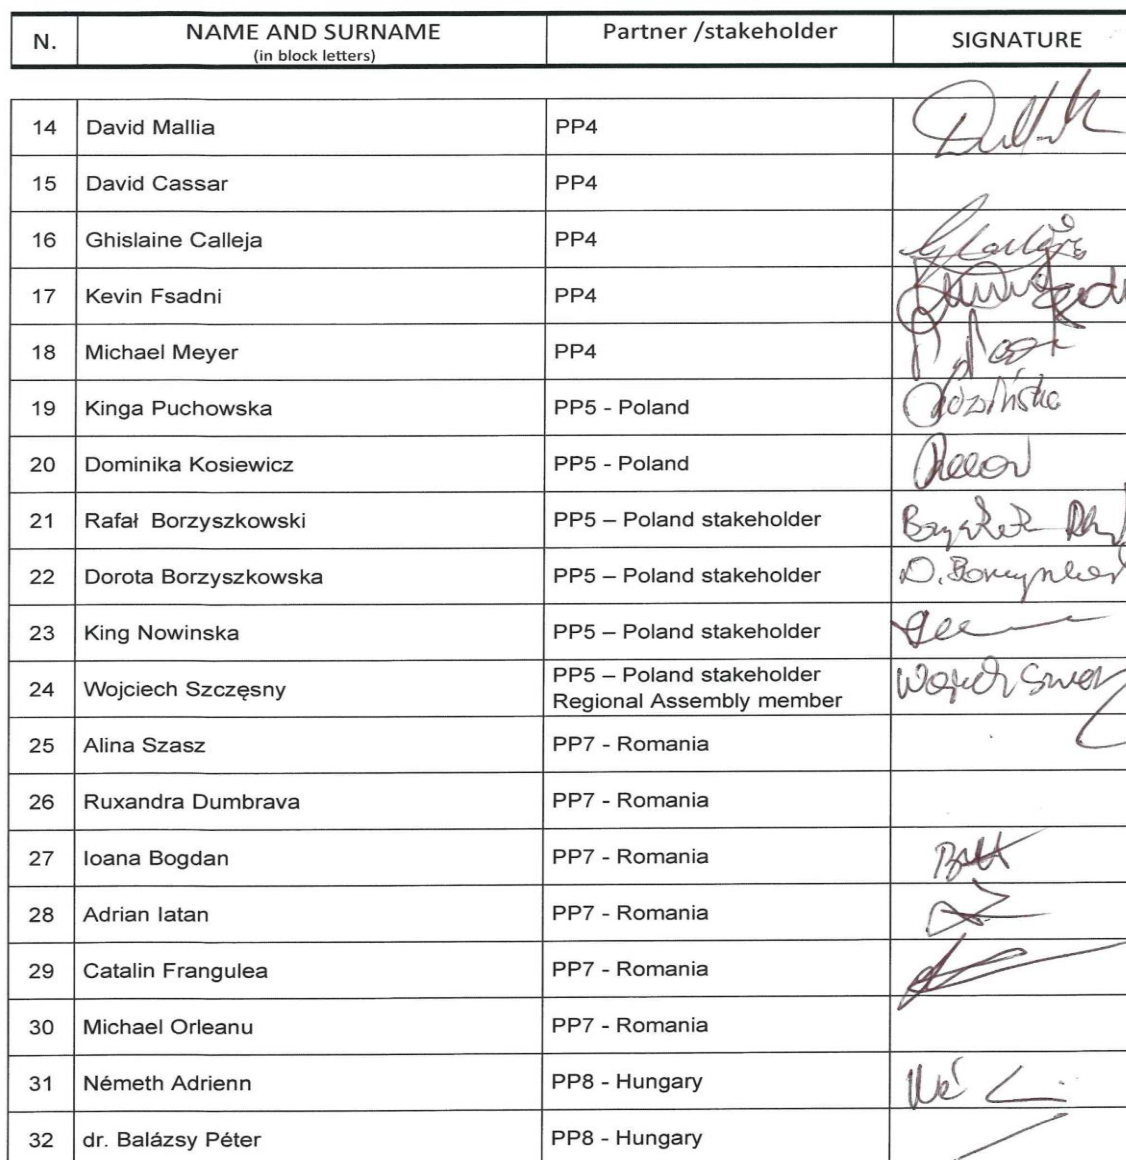 N. NAME AND SURNAME Partner /stakeholder SIGNATURE
(in block letters)
14 David Mallia PP4
15 David Cassar PP4
16 Ghislaine Calleja PP4
17 Kevin Fsadni PP4
18 Michael Meyer PP4
19 Kinga Puchowska PP5 - Poland
20 Dominika Kosiewicz PP5 - Poland
21 Rafał Borzyszkowski PP5 – Poland stakeholder
22 Dorota Borzyszkowska PP5 – Poland stakeholder
23 King Nowinska PP5 – Poland stakeholder
24 Wojciech Szczęsny PP5 – Poland stakeholder
Regional Assembly member
25 Alina Szasz PP7 - Romania
26 Ruxandra Dumbrava PP7 - Romania
27 Ioana Bogdan PP7 - Romania
28 Adrian Iatan PP7 - Romania
29 Catalin Frangulea PP7 - Romania
30 Michael Orleanu PP7 - Romania
31 Németh Adrienn PP8 - Hungary
32 dr. Balázsy Péter PP8 - Hungary